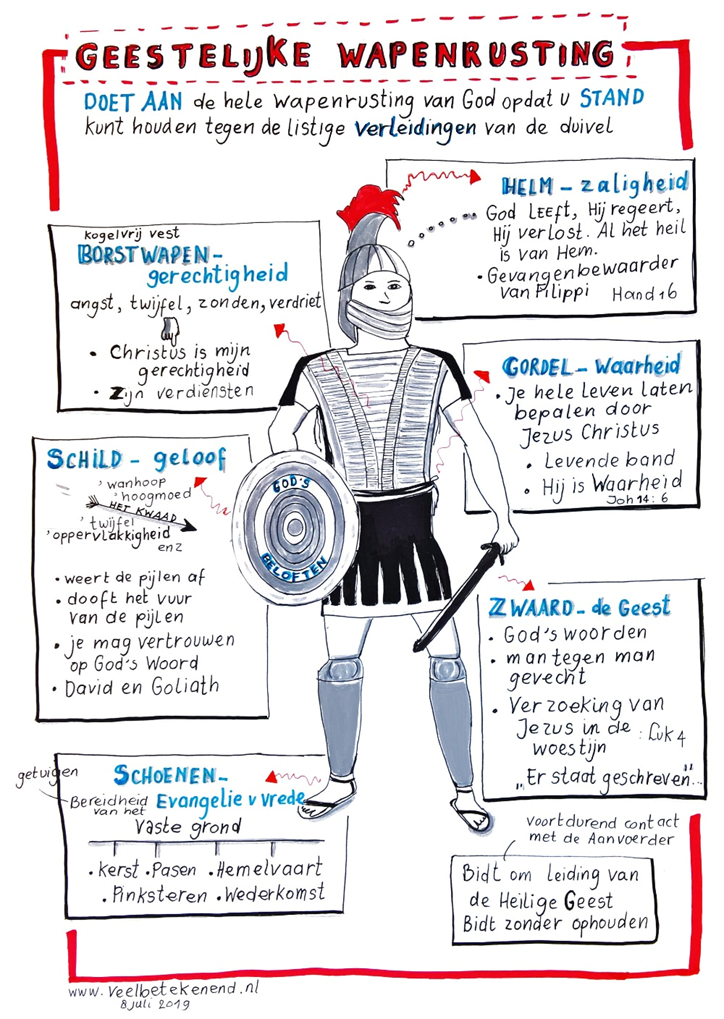 GEESTELIJKE WAPENRUSTING
DOET AAN de hele wapenrusting van God opdat u STAND
kunt houden tegen de listige verleidingen van de duivel
HELM - zaligheid
God LEEFT, Hij regeert,
Hij verlost. Al het heil
is van Hem.
• Gevangenbewaarder
van Filippi Hand 16
kogelvrij vest
BORSTWAPEN -
gerechtigheid
angst, twijfel, zonden, verdriet
• Christus is mijn
gerechtigheid
• Zijn verdiensten
GORDEL - Waarheid
• Je hele leven laten
bepalen door
Jezus Christus
• Levende band
• Hij is Waarheid
Joh 14:6
SCHILD - geloof
' wanhoop
' hoogmoed
HET KWAAD
' twijfel
'oppervlakkigheid
enz
• weert de pijlen af
• dooft het vuur
van de pijlen
• je mag vertrouwen
op God's Woord
• David en Goliath
GOD'S
BELOFTEN
ZWAARD - de Geest
• God's woorden
• man tegen man
gevecht
• Verzoeking van
Jezus in de : Luk 4
woestijn
"Er staat geschreven"...
getuigen
SCHOENEN -
Bereidheid
van het
Evangelie v vrede
Vaste grond
• Kerst • Pasen • Hemelvaart
• Pinksteren • Wederkomst
voortdurend contact
met de Aanvoerder
Bidt om leiding van
de Heilige Geest
Bidt zonder ophouden
www.veelbetekenend.nl
8 juli 2019